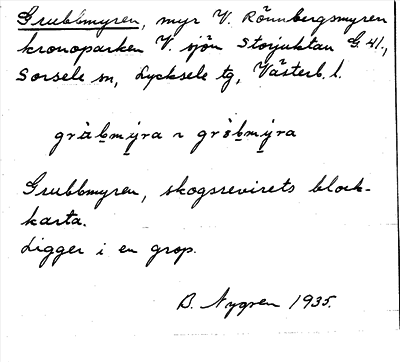 Grubbmyren, myr V. Rönnbergsmyren
kronoparken V. sjön Storjuktan G. 41.,
Sorsele sn, Lycksele tg, Västerb. l.
gràbmýra ~ grèbmýra
Grubbmyren, skogsrevirets block-
karta.
Ligger i en grop.
B. Nygren 1935.